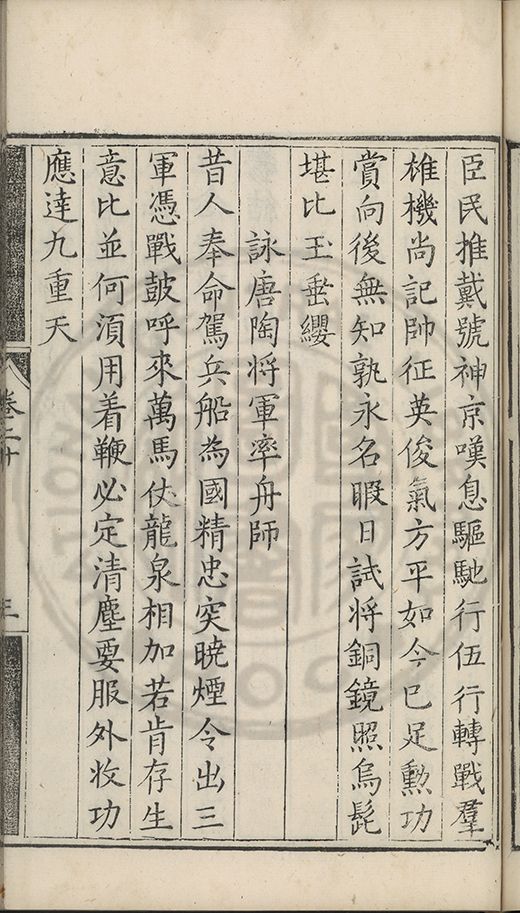 臣民推戴號神京嘆息驅馳行伍行轉戰羣
雄機尚記帥征英俊氣方平如今已足勲功
賞向後無知孰永名暇日試将銅鏡照烏髭
堪比玉垂纓
詠唐陶将軍率舟師
昔人奉命駕兵船為國精忠突曉煙令出三
軍憑戰鼓呼來萬馬仗龍泉相加若肯存生
意比並何須用着鞭必定清塵要服外收功
應達九重天
卷之十
三